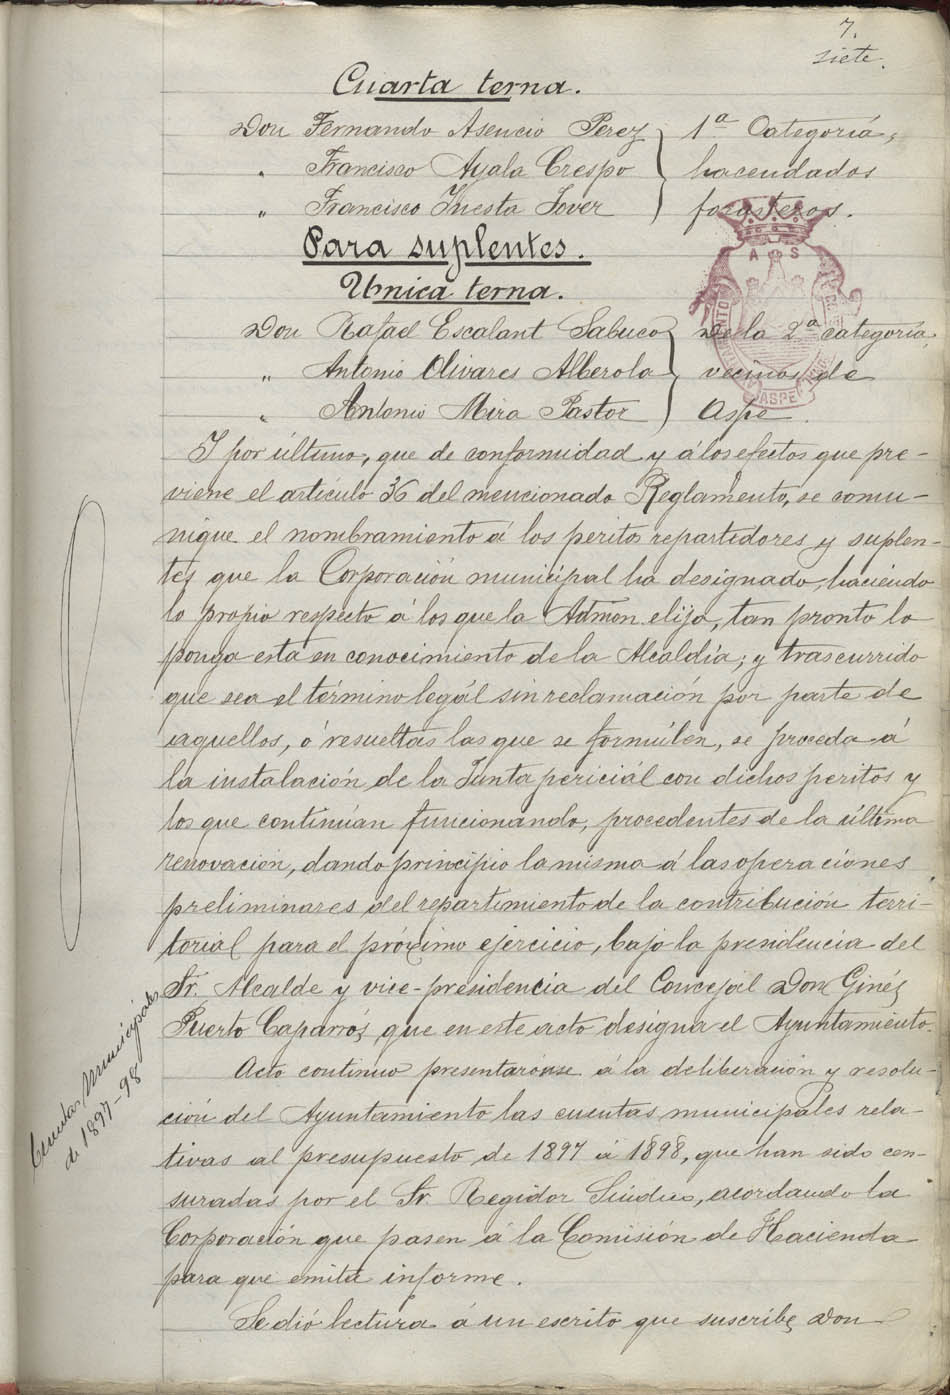 7.
siete.
Cuarta terna.
Don Fernando Asencio Perez } 1ª Categoría,
" Francisco Ayala Crespo } hacendados
" Francisco Iñesta Jover } forasteros.
Para suplentes.
Unica terna.
Don Rafael Escalant Sabuco } De la 2ª categoría,
" Antonio Olivares Alberola } vecinos de
" Antonio Mira Pastor } Aspe.
Y por último, que de conformidad y á los efectos que pre-
viene el artículo 36 del mencionado Reglamento, se comu-
nique el nombramiento á los peritos repartidores y suplen-
tes que la Corporación municipal ha designado, haciendo
lo propio respecto á los que la Admon. elija, tan pronto lo
ponga esta en conocimiento de la Alcaldía; y trascurrido
que sea el término legál sin reclamación por parte de
aquellos, ó resueltas las que se formúlen, se proceda á
la instalación de la Junta periciál con dichos peritos y
los que continúan funcionando, procedentes de la última
renovación, dando principio la misma á las operaciones
preliminares del repartimiento de la contribución terri-
torial para el próximo ejercicio, bajo la presidencia del
Sr. Alcalde y vice-presidencia del Concejal Don Ginés
Puerto Caparrós, que en este acto designa el Ayuntamiento.
Cuentas municipales
de 1897-98
Acto continuo presentáronse á la deliberación y resolu-
ción del Ayuntamiento las cuentas municipales rela-
tivas al presupuesto de 1897 á 1898, que han sido cen-
suradas por el Sr. Regidor Síndico, acordando la
Corporación que pasen á la Comisión de Hacienda
para que emita informe.
Se dió lectura á un escrito que suscribe Don
A S
ASPE